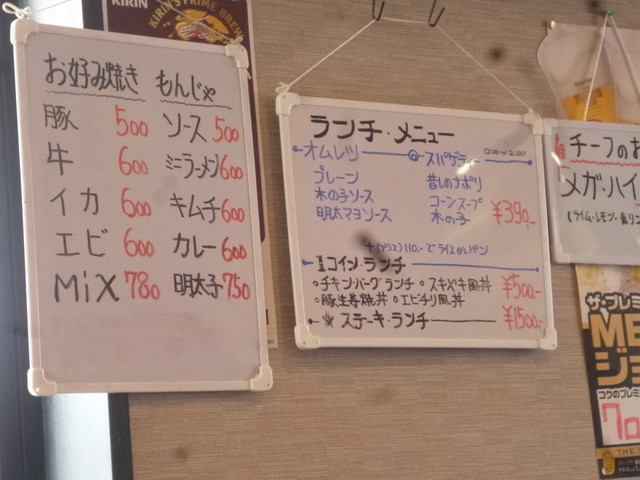 KIRIN
KIRIN'S PRIME BREW
お好み焼き もんじゃ
豚 500 ソース 500
牛 600 ミニラーメン 600
イカ 600 キムチ 600
エビ 600 カレー 600
MiX 780 明太子 750
ランチ・メニュー
オムレツ スパゲティー
プレーン 昔しのナポリ
木の子ソース コーンスープ
明太マヨソース 木の子 ¥390-
110-でライスorパン
1コイン・ランチ
・チキン・バーグランチ ・スキヤキ風丼 ¥500-
・豚生姜焼丼 ・エビチリ風丼
ステーキ・ランチ ¥1500-
チーフのお
メガ・ハイ
(ライム・レモン・
ザ・プレミ
ME
ジョ
コクのプレミ
70
THE